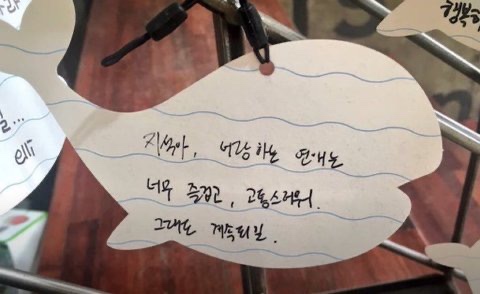 행복하
지석아, 너랑 하는 연애는
너무 즐겁고, 고통스러워.
그대로 계속되길.
길...
elli